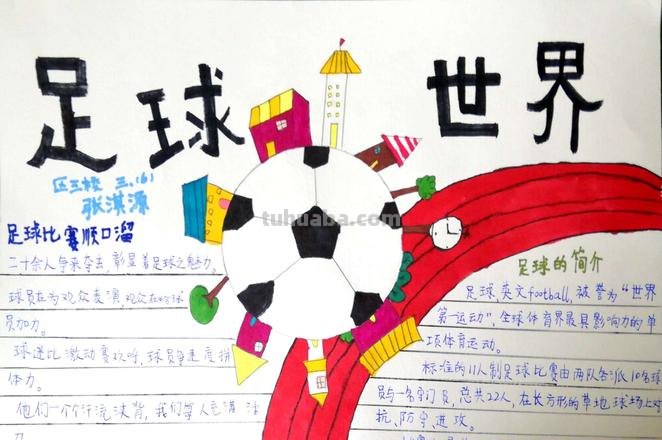 足球 世界
区三校 三.(6)
张淇源
tuhuaba.com
足球比赛顺口溜
二十余人争来夺去,彰显着足球之魅力。
球员在为观众表演,观众在给球
员加力。
球迷比激动赛欢呼,球员争速度拼
体力。
他们一个个汗流浃背,我们每人
力
足球的简介
足球,英文football,被誉为“世界
第一运动”,全球体育界最具影响力的单
项体育运动。
标准的11人制足球比赛由两队各派10名球
员与一名守门员,总共22人,在长方形的草地球场上对
抗、防守、进攻。